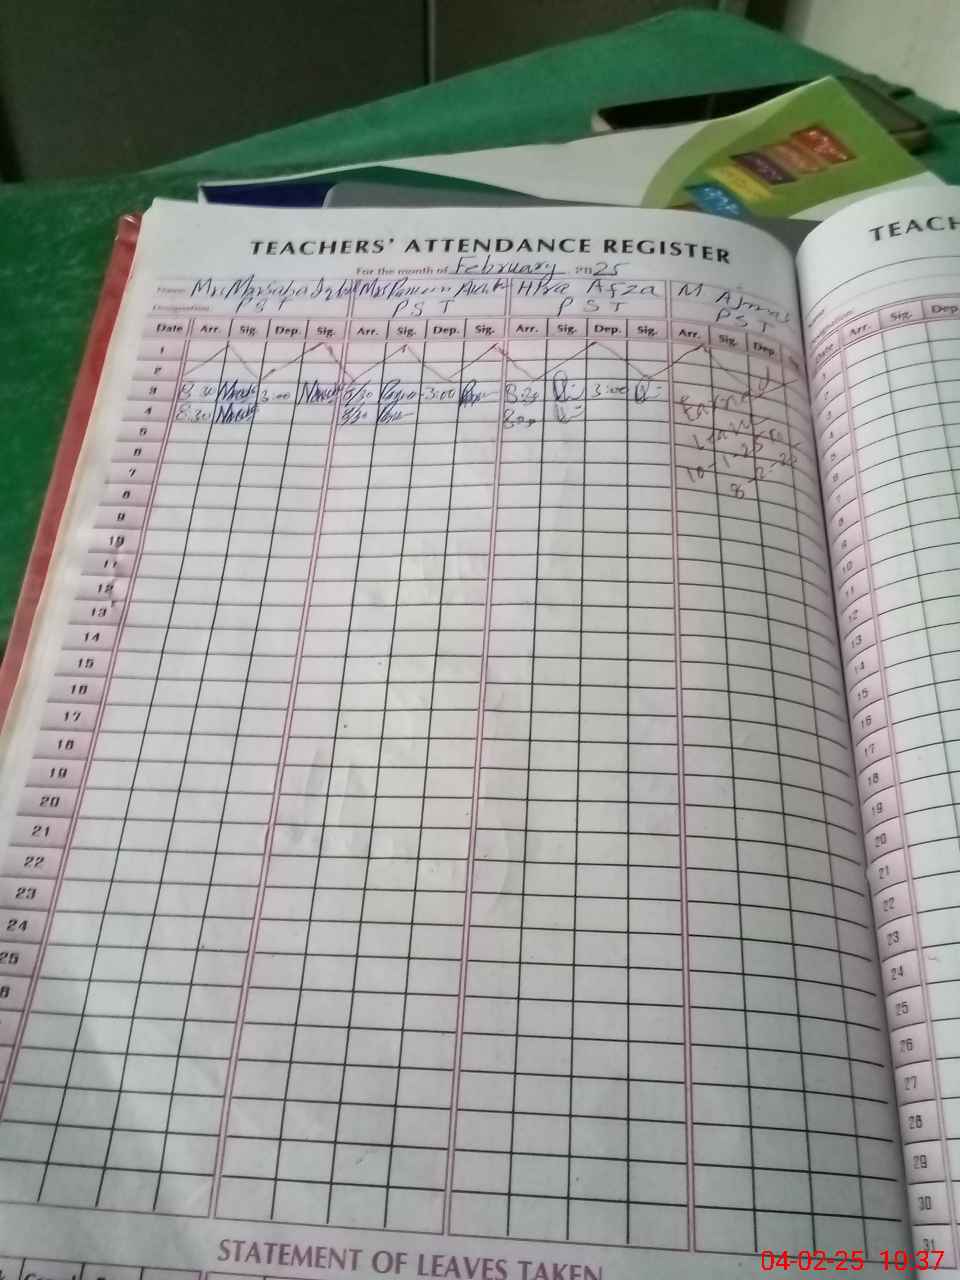 TEACHERS' ATTENDANCE REGISTER
For the month of February 2025
Name: Mrs Iqbal Mrs Afza M Ajmal
Designation: PST PST PST PST
Date Arr. Sig. Dep. Sig. Arr. Sig. Dep. Sig. Arr. Sig. Dep. Sig. Arr. Sig. Dep.
1
2
3 8:30 3:00 8/30 3:00 8:30 3:00 Earned
4 8:30 8/30 8:30 Leave
5 10-1-25 to
6 8-2-25
7
8
9
10
11
12
13
14
15
16
17
18
19
20
21
22
23
24
25
STATEMENT OF LEAVES TAKEN
TEACH
Date Arr. Sig. Dep
1
2
3
4
5
6
7
8
9
10
11
12
13
14
15
16
17
18
19
20
21
22
23
24
25
26
27
28
29
30
31
04-02-25 10:37